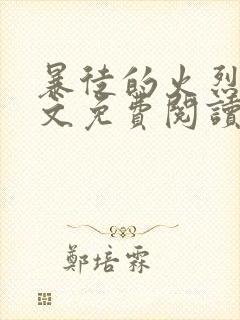 暴徒的火烈
文免費閱讀
鄭培霖